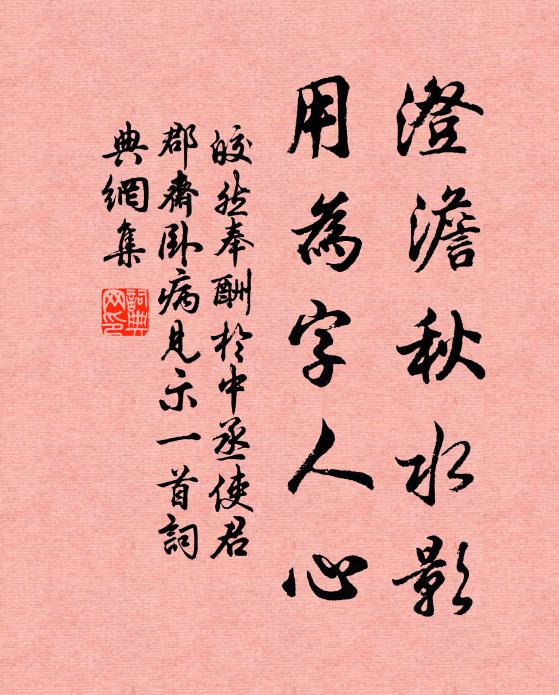 澄澹秋水影
用為字人心
皎然奉酬於中丞使君
郡齋臥病見示一首詞
典網集
詞典網印